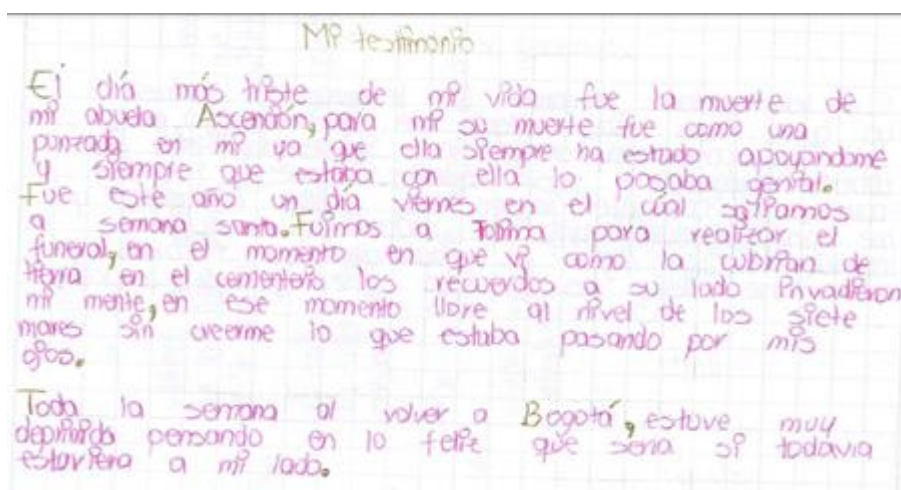 Mi testimonio
El día más triste de mi vida fue la muerte de
mi abuela Ascención, para mi su muerte fue como una
punzada en mi ya que ella siempre ha estado apoyandome
y siempre que estaba con ella lo pasaba genial.
Fue este año un día viernes en el cúal saliamos
a semana santa. Fuimos a Tolima para realizar el
funeral, en el momento en que vi como la cubrian de
tierra en el cementerio los recuerdos a su lado invadieron
mi mente, en ese momento llore al nivel de los siete
mares sin creerme lo que estaba pasando por mis
ojos.
Toda la semana al volver a Bogotá, estuve muy
deprimido pensando en lo feliz que seria si todavia
estuviera a mi lado.